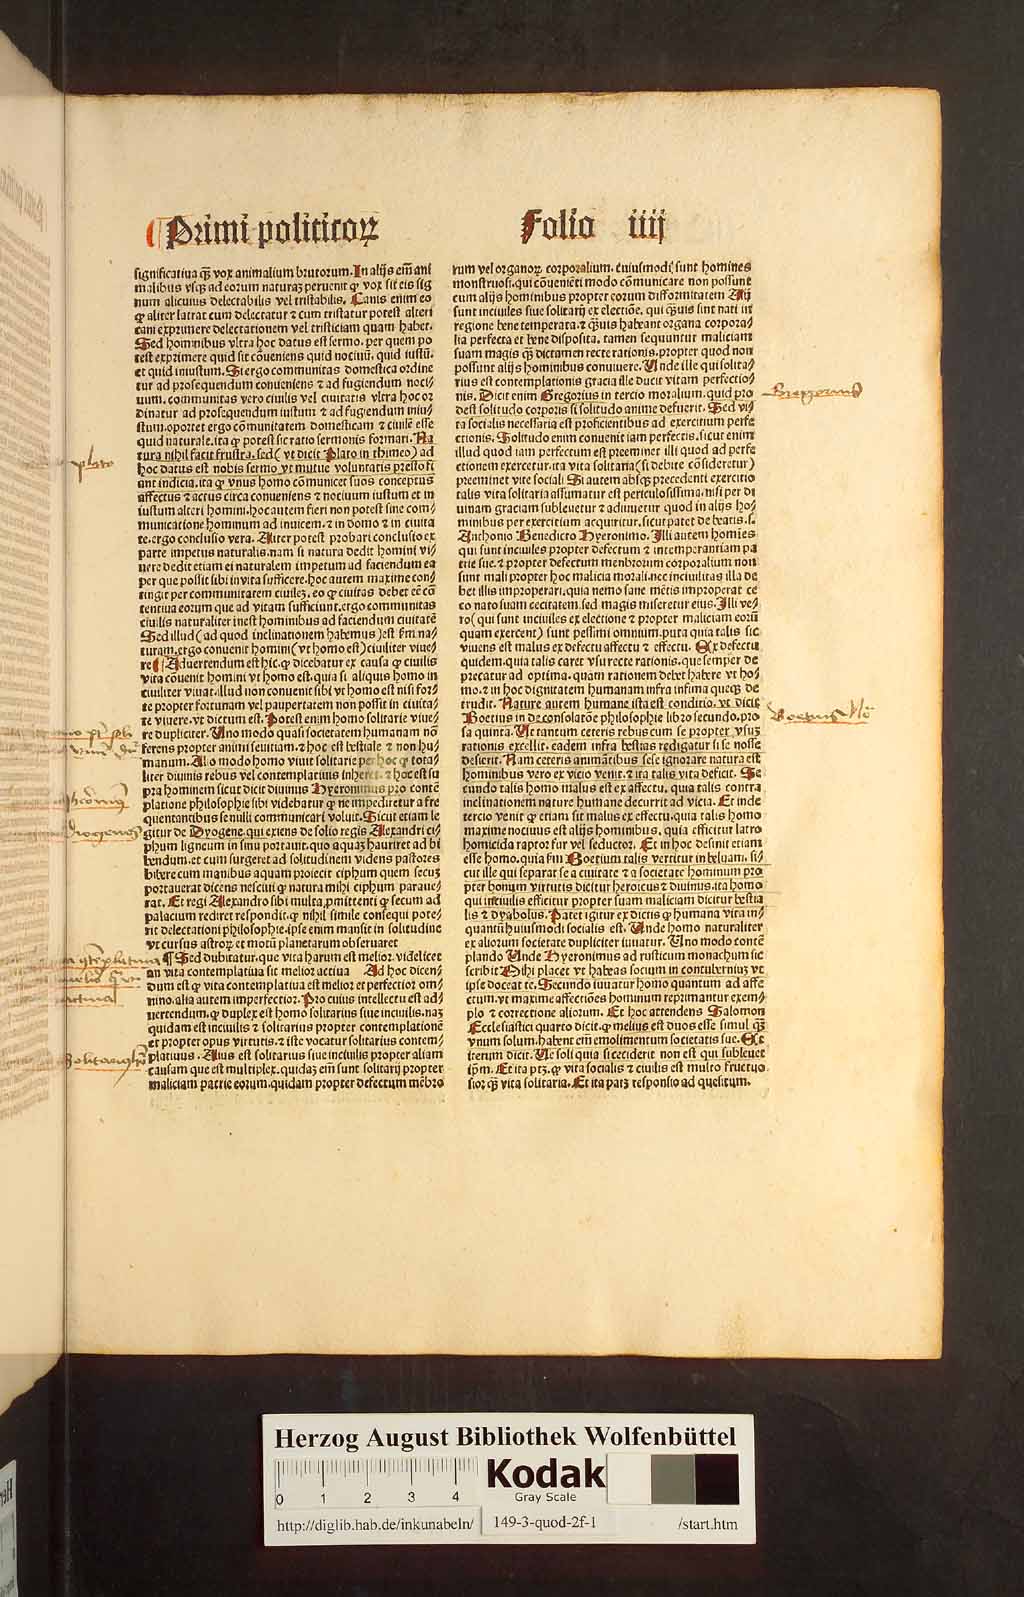 Primi politicoꝝ Folio iiij
significatiua qꝫ vox animalium brutorum. In alijs em̄ ani
malibus vsqꝫ ad eorum naturaꝫ peruenit ꝙ vox sit eis sig
num alicuius delectabilis vel tristabilis. Canis enim eo
ꝙ aliter latrat cum delectatur ⁊ cum tristatur potest alteri
cani exprimere delectationem vel tristiciam quam habet.
Sed hominibus vltra hoc datus est sermo. per quem po
test exprimere quid sit cōueniens quid nociuū. quid iustū.
et quid iniustum. Si ergo communitas domestica ordine
tur ad prosequendum conueniens ⁊ ad fugiendum noci⸗
uum. communitas vero ciuilis vel ciuitatis vltra hoc or
dinatur ad prosequendum iustum ⁊ ad fugiendum iniu⸗
stum. oportet ergo cōmunitatem domesticam ⁊ ciuilē esse
quid naturale. ita ꝙ potest sic ratio sermonis formari. Na
tura nihil facit frustra. sed( vt dicit Plato in thimeo) ad
hoc datus est nobis sermo vt mutue voluntatis presto fi
ant indicia. ita ꝙ vnus homo cōmunicet suos conceptus
affectus ⁊ actus circa conueniens ⁊ nociuum iustum et in
iustum alteri homini. hoc autem fieri non potest sine com⸗
municatione hominum ad inuicem. ⁊ in domo ⁊ in ciuita
te. ergo conclusio vera. Aliter potest probari conclusio ex
parte impetus naturalis. nam si natura dedit homini vi⸗
uere dedit etiam ei naturalem impetum ad faciendum ea
per que possit sibi in vita sufficere. hoc autem maxime con⸗
tingit per communitatem ciuileꝫ. eo ꝙ ciuitas debet eē cō
tentiua eorum que ad vitam sufficiunt. ergo communitas
ciuilis naturaliter inest hominibus ad faciendum ciuitatē
Sed illud( ad quod inclinationem habemus) est ẜm na⸗
turam. ergo conuenit homini( vt homo est) ciuiliter viue⸗
re ¶ Aduertendum est hic. ꝙ dicebatur ex causa ꝙ ciuilis
vita cōuenit homini vt homo est. quia si aliquis homo in
ciuiliter viuat. illud non conuenit sibi vt homo est nisi for⸗
te propter fortunam vel paupertatem non possit in ciuita⸗
te viuere. vt dictum est. Potest enim homo solitarie viue⸗
re dupliciter. Uno modo quasi societatem humanam nō
ferens propter animi seuitiam. ⁊ hoc est bestiale ⁊ non hu⸗
manum. Alio modo homo viuit solitarie per hoc ꝙ tota⸗
liter diuinis rebus vel contemplatiuis inheret. ⁊ hoc est su
pra hominem sicut dicit diuinus Hyeronimus pro contē
platione philosophie sibi videbatur ꝙ ne impediretur a fre
quentantibus se nulli communicari voluit. Sicut etiam le
gitur de Dyogene. qui exiens de solio regis Alexandri ci⸗
phum ligneum in sinu portauit. quo aquaꝫ hauriret ad bi
bendum. et cum surgeret ad solitudinem videns pastores
bibere cum manibus aquam proiecit ciphum quem secuꝫ
portauerat dicens nesciui ꝙ natura mihi ciphum paraue⸗
rat. Et regi Alexandro sibi multa ꝓmittenti ꝙ secum ad
palacium rediret respondit. ꝙ nihil simile consequi pote⸗
rit delectationi philosophie. ipse enim mansit in solitudine
vt cursus astroꝝ et motū planetarum obseruaret
¶ Sed dubitatur. que vita harum est melior. videlicet
an vita contemplatiua sit melior actiua Ad hoc dicen⸗
dum est ꝙ vita contemplatiua est melior et perfectior om⸗
nino. alia autem imperfectior. Pro cuius intellectu est ad⸗
uertendum. ꝙ duplex est homo solitarius siue inciuilis. naꝫ
quidam est inciuilis ⁊ solitarius propter contemplationē
et propter opus virtutis. ⁊ iste vocatur solitarius contem⸗
platiuus. Alius est solitarius siue inciuilis propter aliam
causam que est multiplex. quidaꝫ em̄ sunt solitarij propter
maliciam patrie eorum. quidam propter defectum mēbro
rum vel organoꝝ corporalium. cuiusmodi sunt homines
monstruosi. qui cōuenieti modo cōmunicare non possunt
cum alijs hominibus propter eorum difformitatem Alij
sunt inciuiles siue solitarij ex electiōe. qui qꝫuis sint nati in
regione bene temperata. ⁊ qꝫuis habeant organa corpora⸗
lia perfecta et bene disposita. tamen sequuntur maliciam
suam magis qꝫ dictamen recte rationis. propter quod non
possunt alijs hominibus conuiuere. Unde ille qui solita⸗
rius est contemplationis gracia ille ducit vitam perfectio⸗
nis. Dicit enim Gregorius in tercio moralium. quid pro
dest solitudo corporis si solitudo anime defuerit. Sed vi⸗
ta socialis necessaria est proficientibus ad exercitium perfe
ctionis. Solitudo enim conuenit iam perfectis. sicut enim
illud quod iam perfectum est preeminet illi quod ad perfe
ctionem exercetur. ita vita solitaria( si debite cōsideretur)
preeminet vite sociali Si autem absqꝫ precedenti exercitio
talis vita solitaria assumatur est periculosissima. nisi per di
uinam graciam subleuetur ⁊ adiuuetur quod in alijs ho⸗
minibus per exercitium acquiritur. sicut patet de beatis. s.
Anthonio Benedicto Hyeronimo. Illi autem homies
qui sunt inciuiles propter defectum ⁊ intemperantiam pa
trie sue. ⁊ propter defectum menbrorum corporalium non
sunt mali propter hoc malicia morali. nec inciuilitas illa de
bet illis improperari. quia nemo sane mētis improperat ce
co nato suam cecitatem. sed magis miseretur eius. Illi ve⸗
ro( qui sunt inciuiles ex electione ⁊ propter maliciam eorū
quam exercent) sunt pessimi omnium. puta quia talis sic
viuens est malus ex defectu affectu ⁊ effectu. Ex defectu
quidem. quia talis caret vsu recte rationis. que semper de
precatur ad optima. quam rationem debet habere vt ho⸗
mo. ⁊ in hoc dignitatem humanam infra infima queqꝫ de
trudit. Nature autem humane ista est conditio. vt dicit
Boetius in de consolatōe philosophie libro secundo. pro
sa quinta. Ut tantum ceteris rebus cum se propter vsuꝫ
rationis excellit. eadem infra bestias redigatur si se nosse
desierit. Nam ceteris animātibus sese ignorare natura est
hominibus vero ex vicio venit. ⁊ ita talis vita deficit. Se
cundo talis homo malus est ex affectu. quia talis contra
inclinationem nature humane decurrit ad vicia. Et inde
tercio venit ꝙ etiam sit malus ex effectu. quia talis homo
maxime nociuus est alijs hominibus. quia efficitur latro
homicida raptor fur vel seductor. Et in hoc desinit etiam
esse homo. quia ẜm Boetium talis vertitur in beluam. si⸗
cut ille qui separat se a ciuitate ⁊ a societate hominum pro
pter bonum virtutis dicitur heroicus ⁊ diuinus. ita homo
qui inciuilis efficitur propter suam maliciam dicitur bestia
lis ⁊ dyabolus. Patet igitur ex dictis ꝙ humana vita in⸗
quantū huiusmodi socialis est. Unde homo naturaliter
ex aliorum societate dupliciter iuuatur. Uno modo contē
plando Unde Hyeronimus ad rusticum monachum sic
scribit Mihi placet vt habeas socium in contubernijs vt
ipse doceat te. Secundo iuuatur homo quantum ad affe
ctum. vt maxime affectiōes hominum reprimantur exem⸗
plo ⁊ correctione aliorum. Et hoc attendens Salomon
Ecclesiastici quarto dicit. ꝙ melius est duos esse simul qꝫ
vnum solum. habent em̄ emolimentum societatis sue. Et
iterum dicit. Ue soli quia si ceciderit non est qui subleuet
ip̄m. Et ita ptꝫ. ꝙ vita socialis ⁊ ciuilis est multo fructuo
sior qꝫ vita solitaria. Et ita patꝫ responsio ad quesitum.
plato
diogenes
Gregorius
Boetius
Herzog August Bibliothek Wolfenbüttel
0 1 2 3 4
Kodak
Gray Scale
http://diglib.hab.de/inkunabeln/ 149-3-quod-2f-1 /start.htm